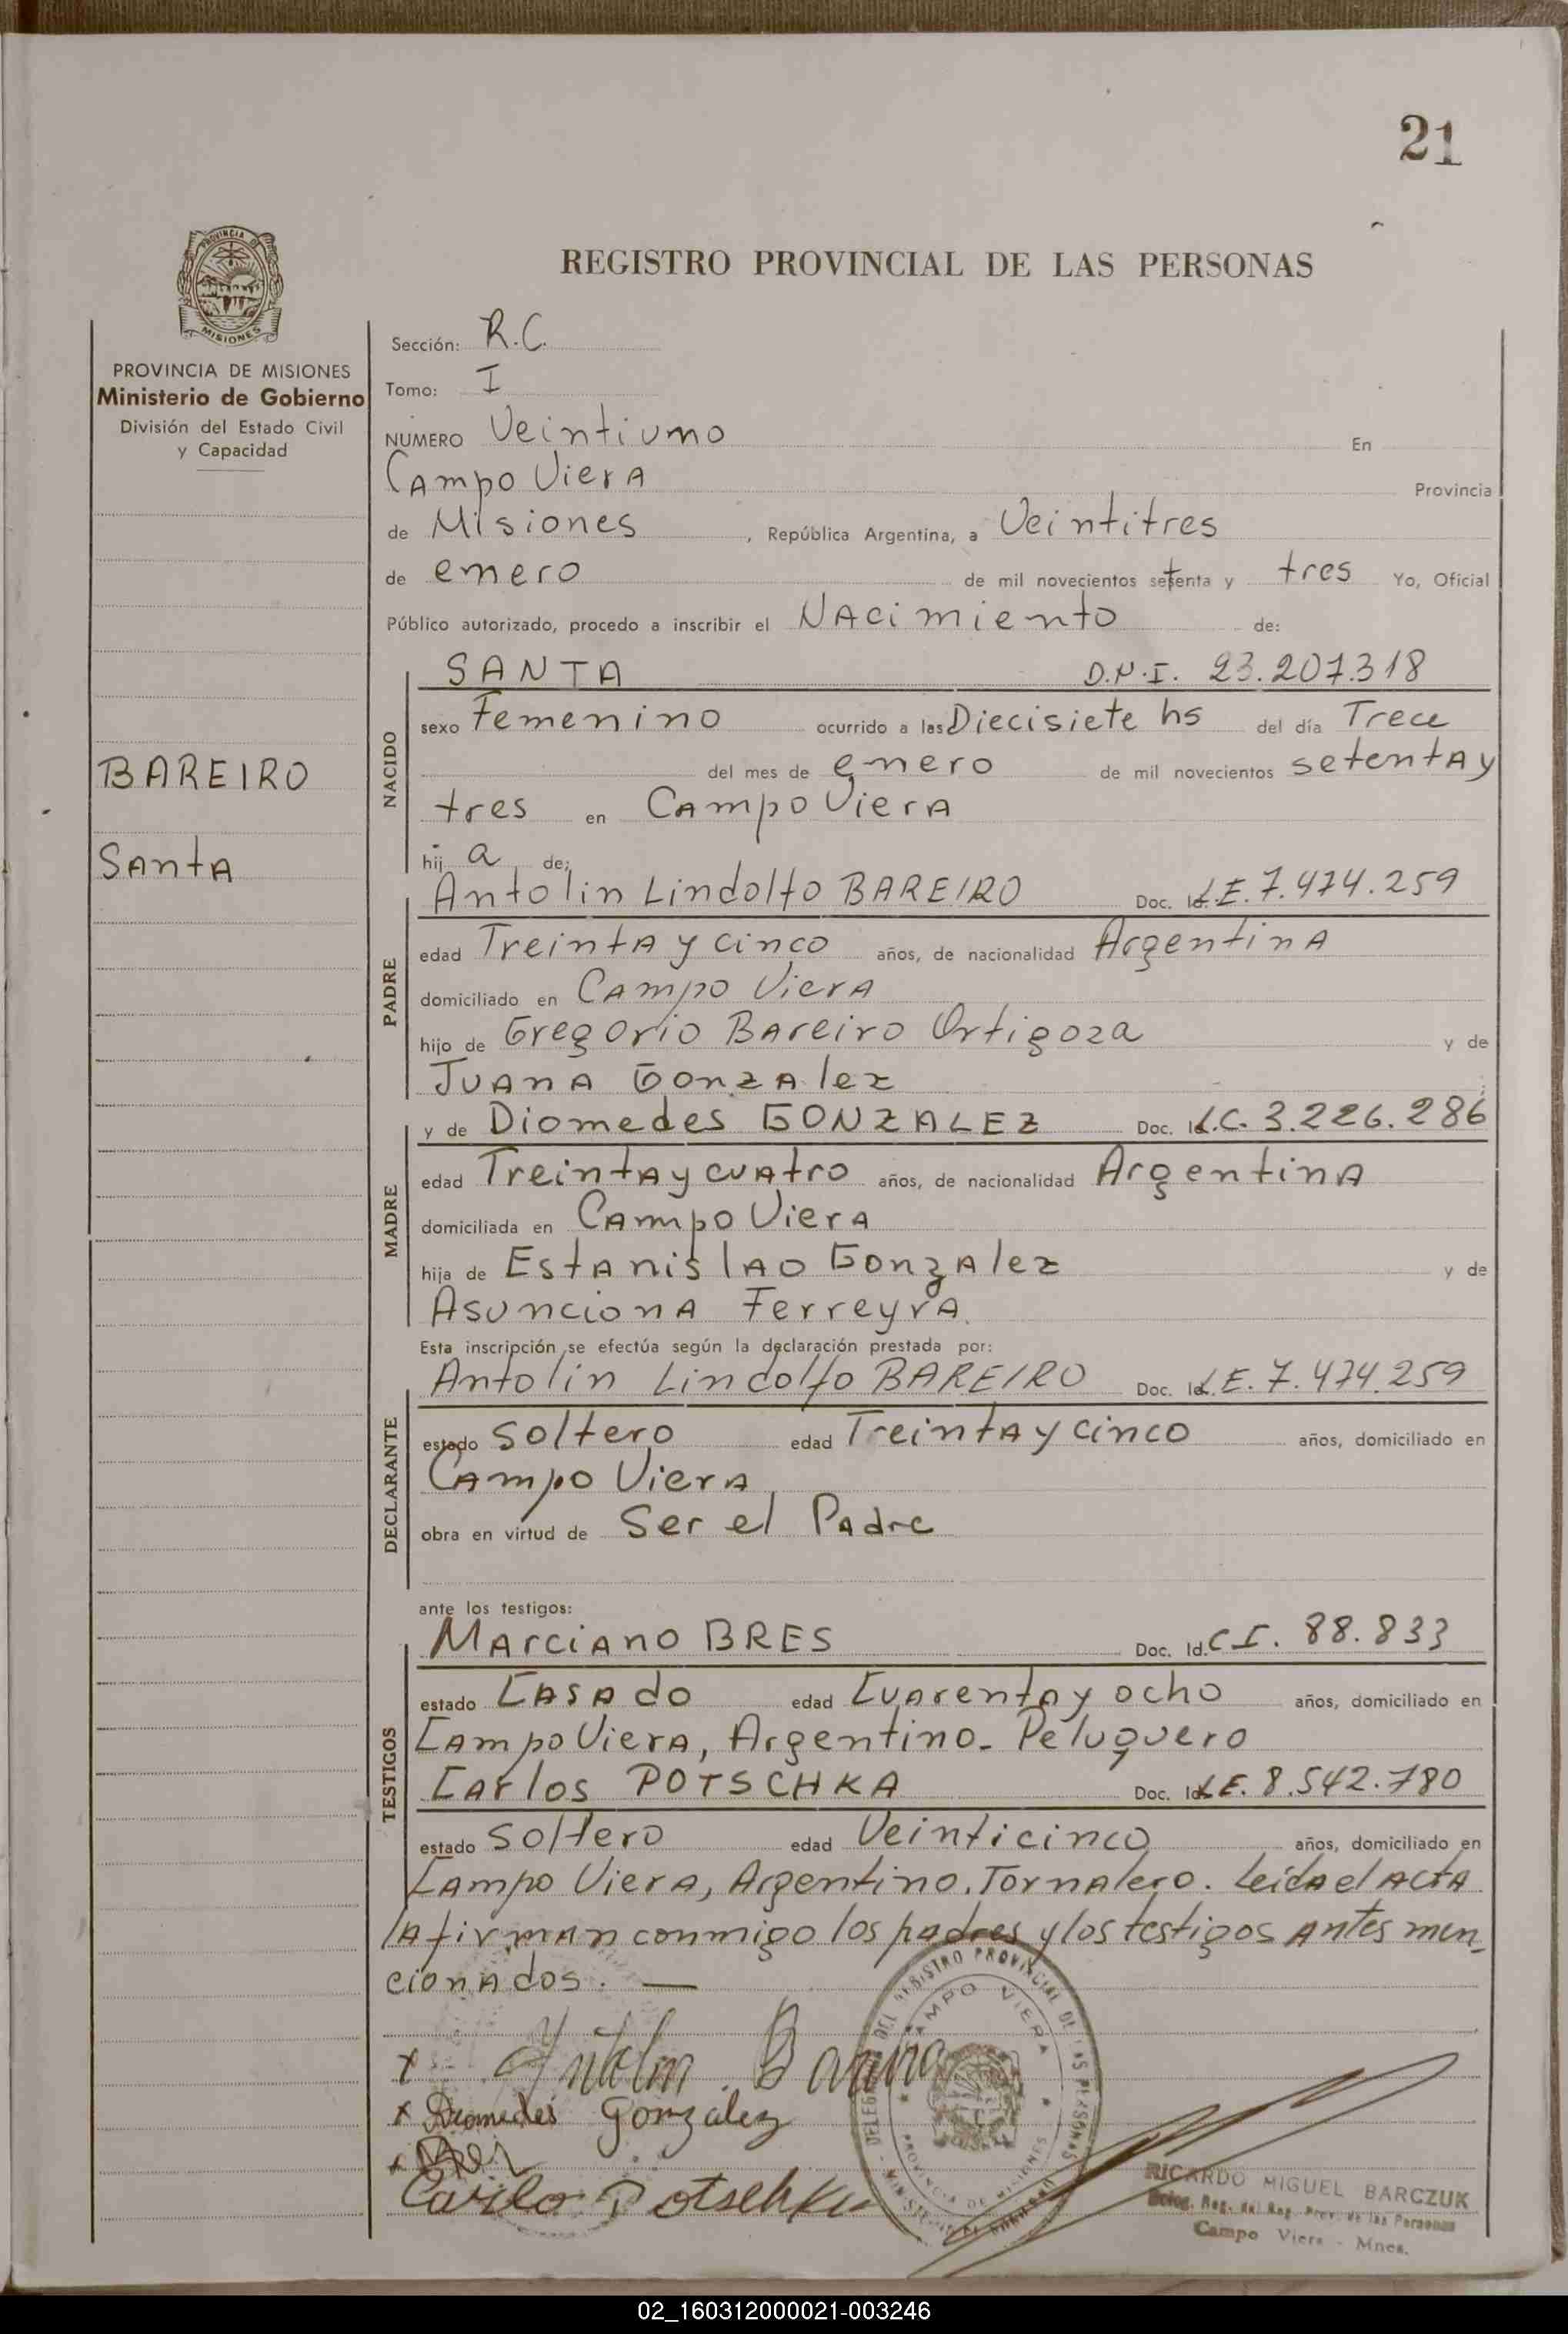 21
PROVINCIA DE
MISIONES
PROVINCIA DE MISIONES
Ministerio de Gobierno
División del Estado Civil
y Capacidad
BAREIRO
Santa
REGISTRO PROVINCIAL DE LAS PERSONAS
Sección: R.C.
Tomo: I
NUMERO Veintiuno En
Campo Viera Provincia
de Misiones, República Argentina, a Veintitres
de enero de mil novecientos setenta y tres Yo, Oficial
Público autorizado, procedo a inscribir el Nacimiento de:
NACIDO
SANTA D.N.I. 23.207.318
sexo Femenino ocurrido a las Diecisiete hs del día Trece
del mes de enero de mil novecientos setenta y
tres en Campo Viera
hij a de:
PADRE
Antolin Lindolfo BAREIRO Doc. Id. L.E. 7.474.259
edad Treinta y cinco años, de nacionalidad Argentina
domiciliado en Campo Viera
hijo de Gregorio Bareiro Ortigoza y de
Juana Gonzalez
MADRE
y de Diomedes GONZALEZ Doc. Id. L.C. 3.226.286
edad Treinta y cuatro años, de nacionalidad Argentina
domiciliada en Campo Viera
hija de Estanislao Gonzalez y de
Asunciona Ferreyra.
Esta inscripción se efectúa según la declaración prestada por:
DECLARANTE
Antolin Lindolfo BAREIRO Doc. Id. L.E. 7.474.259
estado soltero edad Treinta y cinco años, domiciliado en
Campo Viera
obra en virtud de Ser el Padre
ante los testigos:
TESTIGOS
Marciano BRES Doc. Id. C.I. 88.833
estado Casado edad Cuarenta y ocho años, domiciliado en
Campo Viera, Argentino- Peluquero
Carlos POTSCHKA Doc. Id. L.E. 8.542.780
estado soltero edad Veinticinco años, domiciliado en
Campo Viera, Argentino. Jornalero. Leida el acta
la firman conmigo los padres y los testigos antes men-
cionados. —
x Antolin Bareiro
x Diomedes Gonzalez
x Bres
Carlos Potschka
DELEGACION DEL REGISTRO PROVINCIAL DE LAS PERSONAS
CAMPO VIERA
PROVINCIA DE MISIONES
MINISTERIO DE GOBIERNO
RICARDO MIGUEL BARCZUK
Deleg. Reg. del Reg. Prov. de las Personas
Campo Viera - Mnes.
02_160312000021-003246